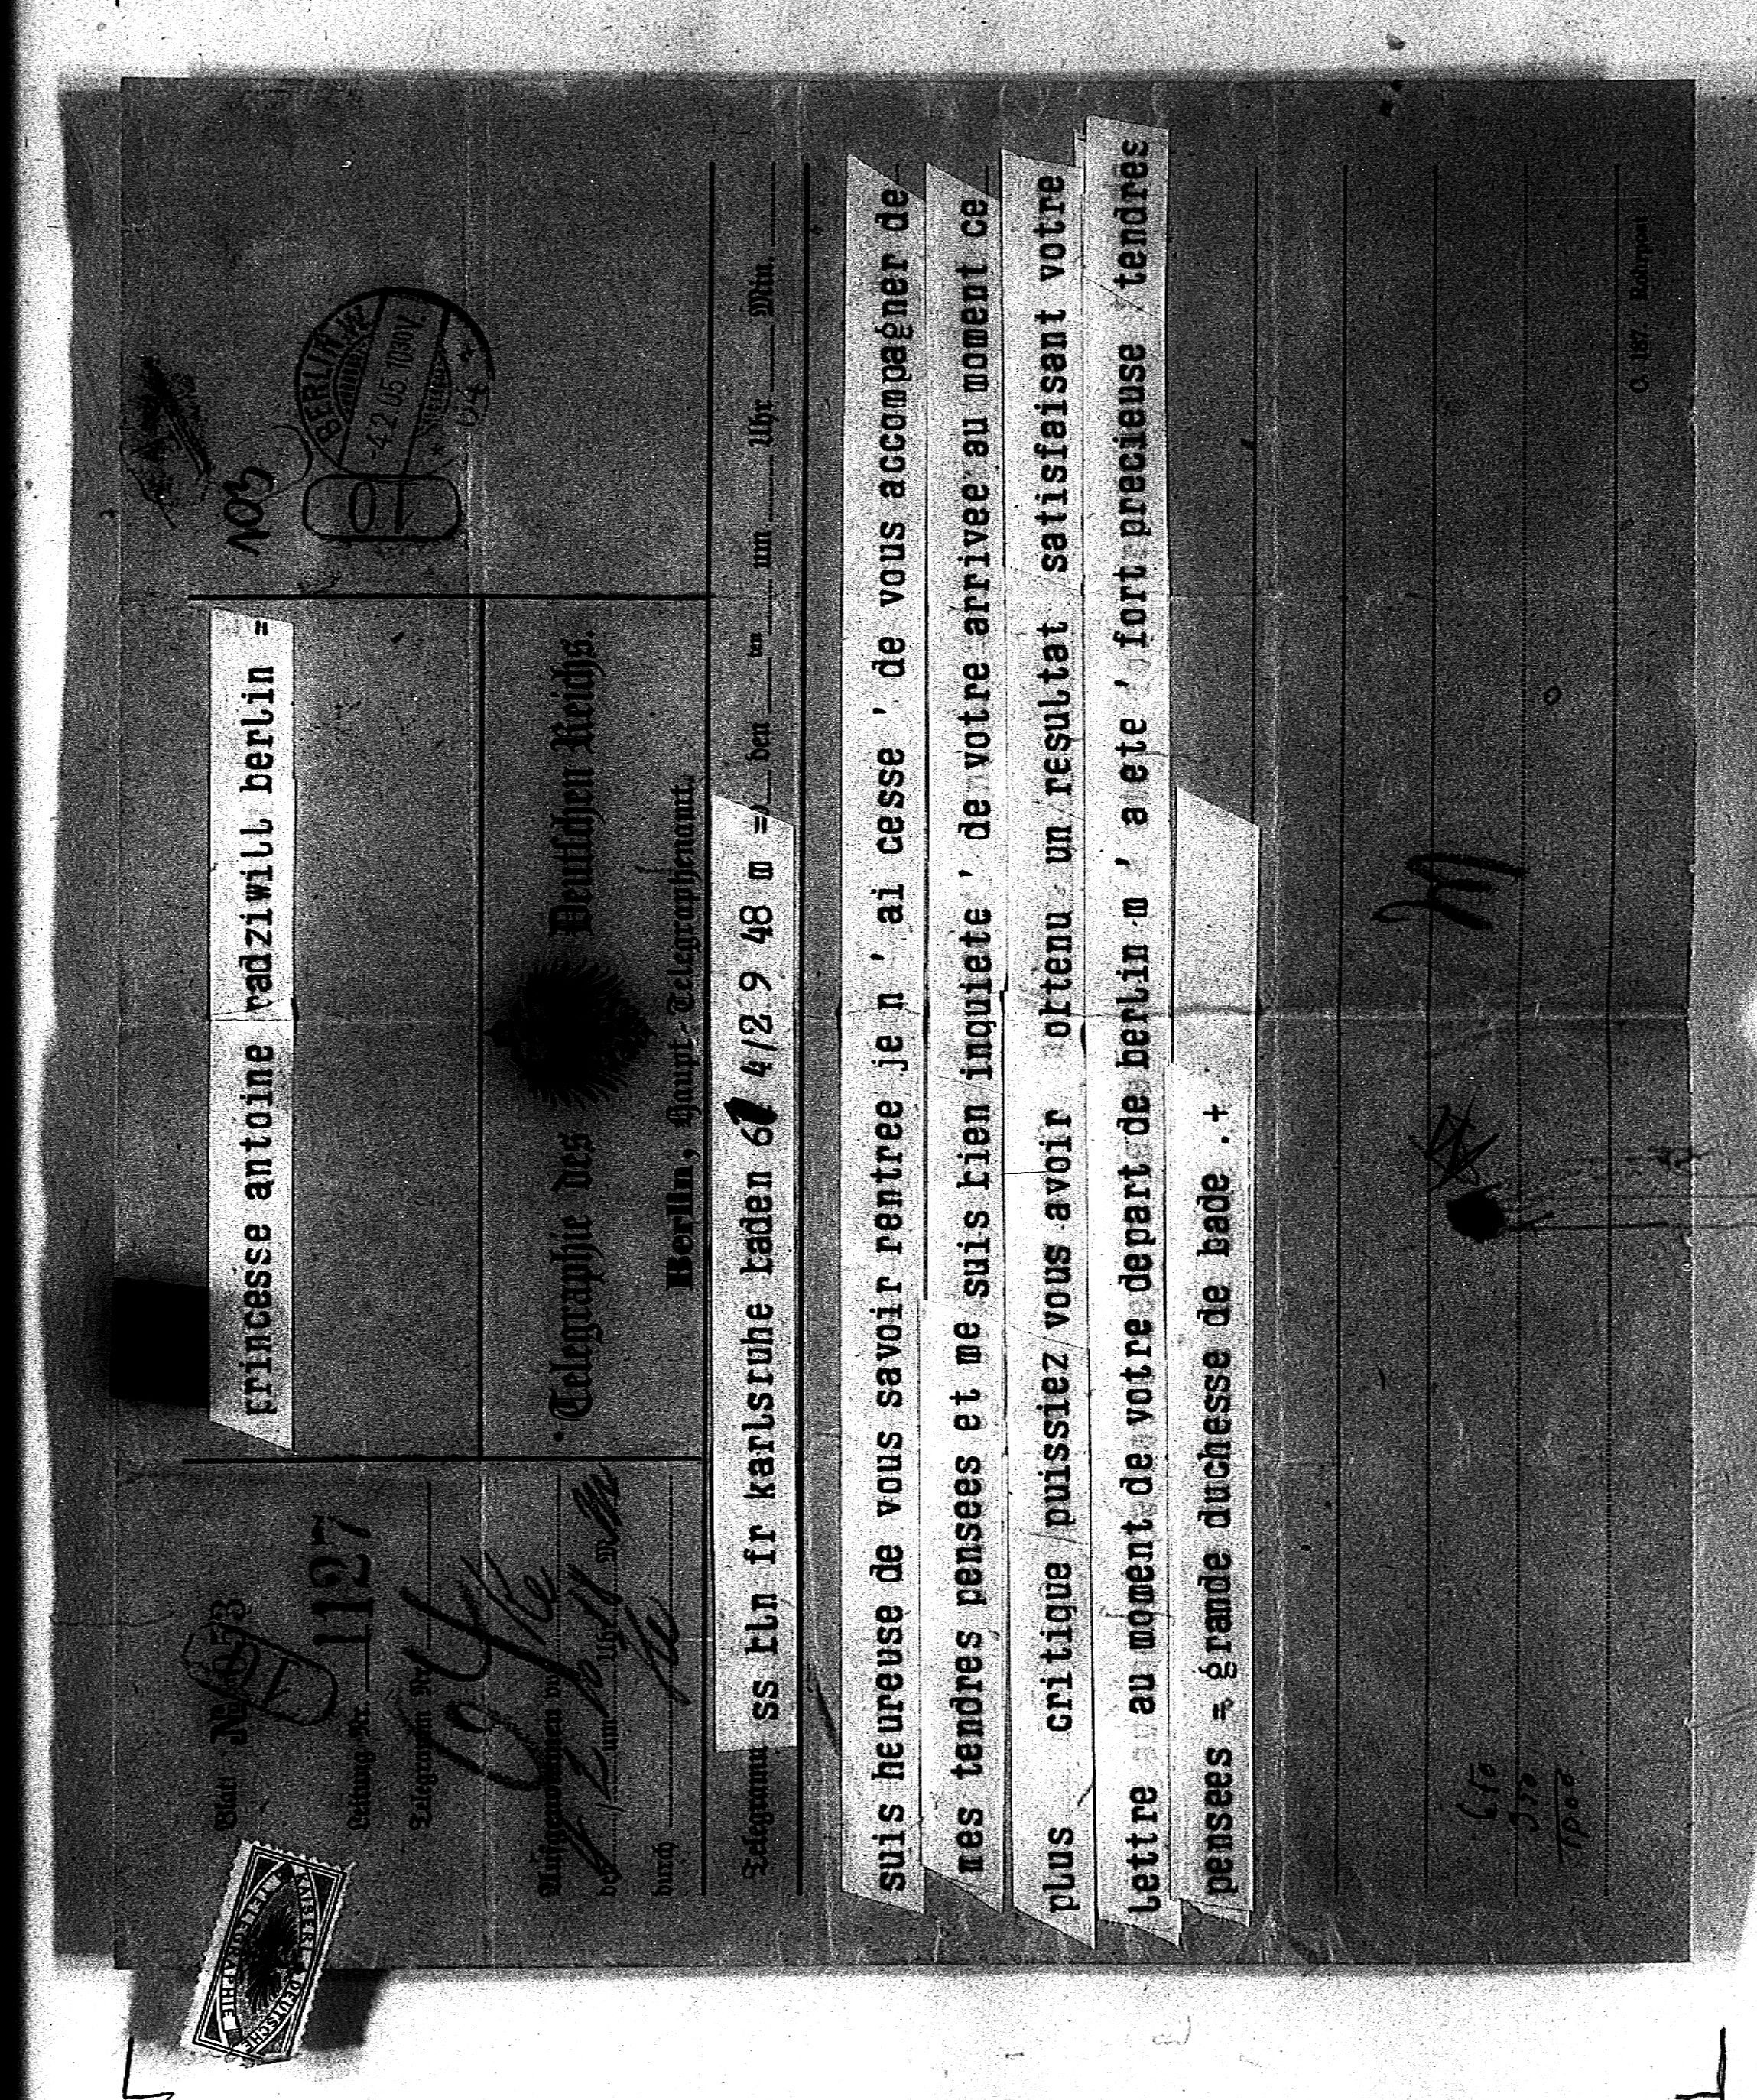 Blatt № 053
Leitung Nr. 1127
Telegramm Nr.
Aufgenommen von
um Uhr
durch
KAISERL. DEUTSCHE
TELEGRAPHIE
princesse antoine radziwill berlin =
103
BERLIN.W.
-4.2.05.1030V.
* 64 *
Telegraphie des Deutschen Reichs.
Berlin, Haupt-Telegraphenamt.
Telegramm ss bln fr karlsruhe baden 61 4/2 9 48 m = den ten um Uhr Min.
suis heureuse de vous savoir rentree je n ' ai cesse ' de vous accompagner de
mes tendres pensees et me suis bien inquiete ' de votre arrivee au moment ce
plus critique puissiez vous avoir obtenu un resultat satisfaisant votre
lettre au moment de votre depart de berlin m ' a ete ' fort precieuse tendres
pensees = grande duchesse de bade .+
C. 187. Rohrpost